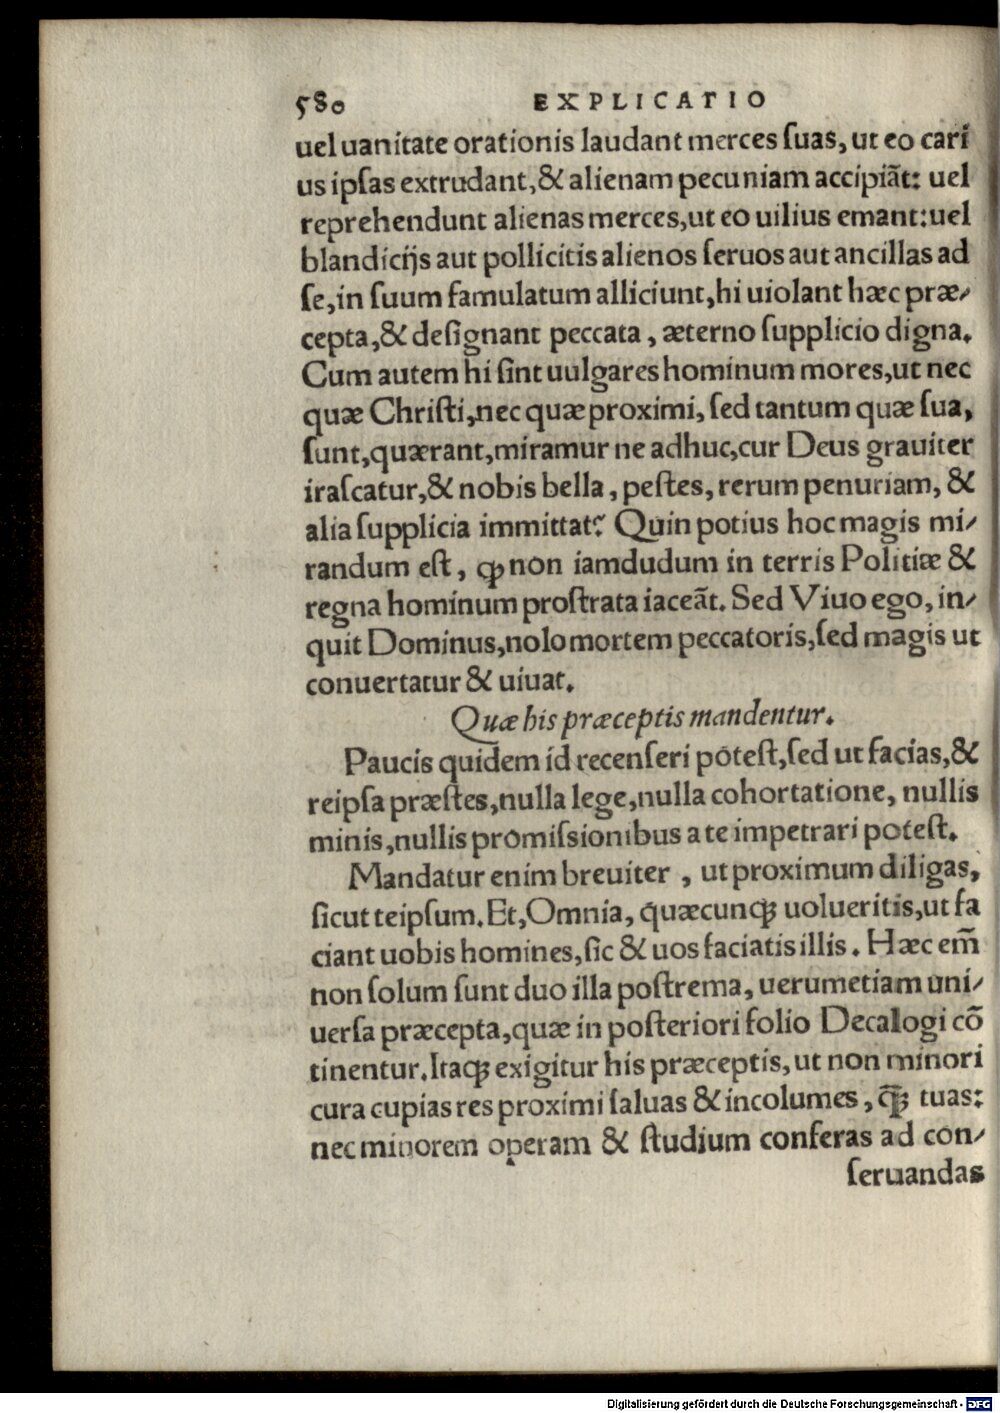 580 EXPLICATIO
uel uanitate orationis laudant merces ſuas, ut eo cari
us ipſas extrudant, & alienam pecuniam accipiãt: uel
reprehendunt alienas merces, ut eo uilius emant: uel
blandicijs aut pollicitis alienos ſeruos aut ancillas ad
ſe, in ſuum famulatum alliciunt, hi uiolant hæc præ-
cepta, & deſignant peccata, æterno ſupplicio digna.
Cum autem hi ſint uulgares hominum mores, ut nec
quæ Chriſti, nec quæ proximi, ſed tantum quæ ſua,
ſunt, quærant, miramur ne adhuc, cur Deus grauiter
iraſcatur, & nobis bella, peſtes, rerum penuriam, &
alia ſupplicia immittat? Quin potius hoc magis mi-
randum eſt, ꝙ non iamdudum in terris Politiæ &
regna hominum proſtrata iaceãt. Sed Viuo ego, in-
quit Dominus, nolo mortem peccatoris, ſed magis ut
conuertatur & uiuat.
Quæ his præceptis mandentur.
Paucis quidem id recenſeri poteſt, ſed ut facias, &
reipſa præſtes, nulla lege, nulla cohortatione, nullis
minis, nullis promiſsionibus a te impetrari poteſt.
Mandatur enim breuiter, ut proximum diligas,
ſicut teipſum. Et, Omnia, quæcunqꝫ uolueritis, ut fa
ciant uobis homines, ſic & uos faciatis illis. Hæc em̃
non ſolum ſunt duo illa poſtrema, uerumetiam uni-
uerſa præcepta, quæ in poſteriori folio Decalogi cõ
tinentur. Itaqꝫ exigitur his præceptis, ut non minori
cura cupias res proximi ſaluas & incolumes, q̃ꝫ tuas:
nec minorem operam & ſtudium conferas ad con-
ſeruandas
Digitalisierung gefördert durch die Deutsche Forschungsgemeinschaft - DFG